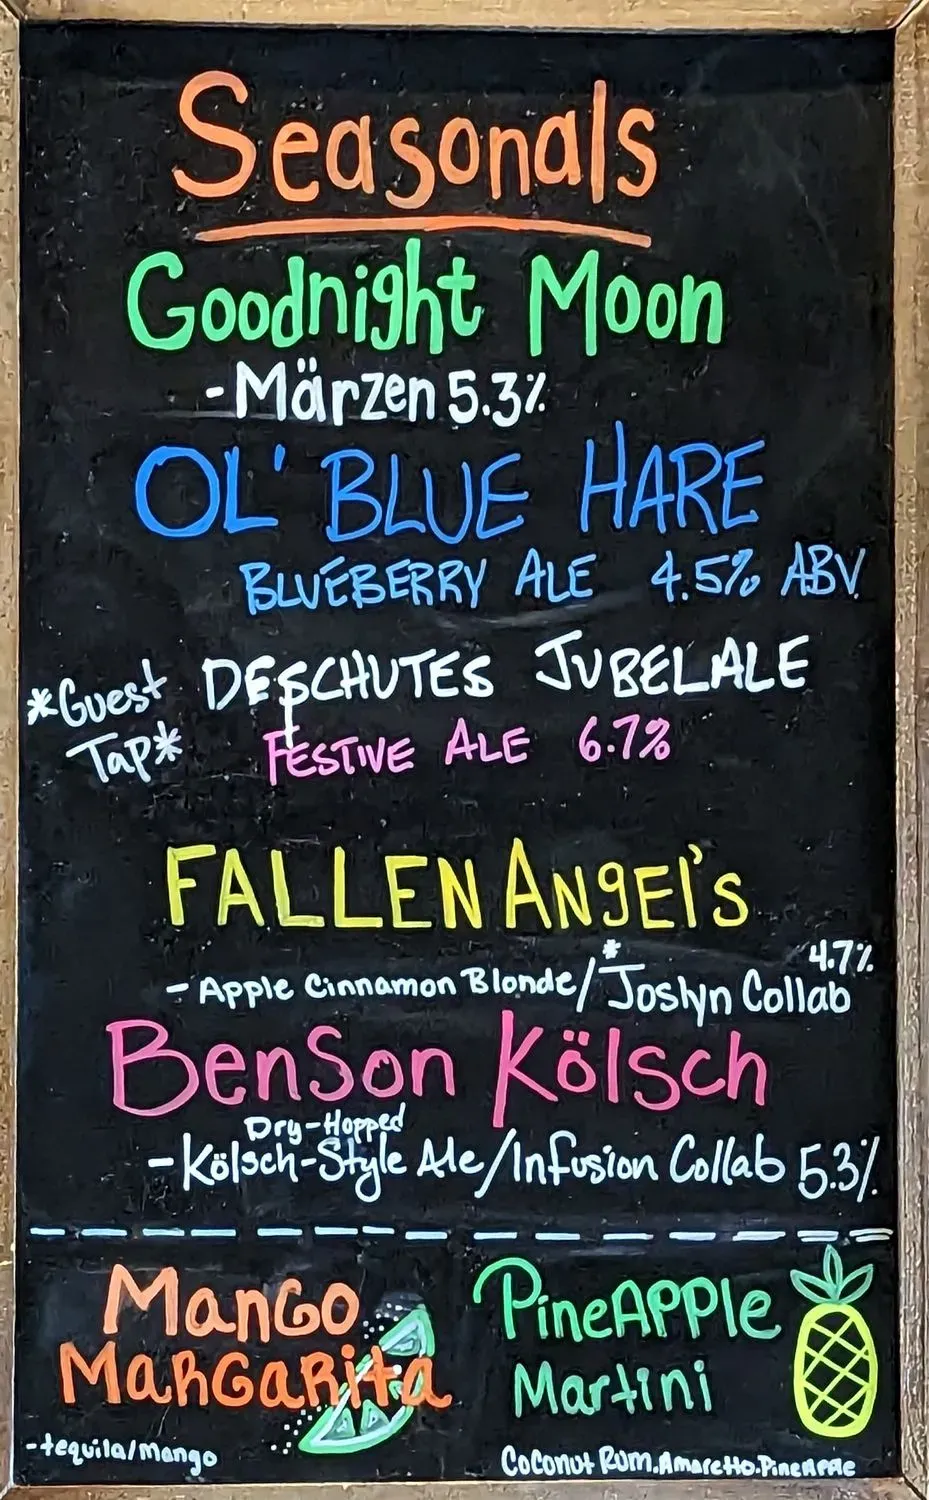 Seasonals
Goodnight Moon
-Märzen 5.3%
OL' BLUE HARE
BLUEBERRY ALE 4.5% ABV
*Guest Tap*
DESCHUTES JUBELALE
FESTIVE ALE 6.7%
FALLEN Angel's
4.7%
- Apple Cinnamon Blonde/*Joslyn Collab
BenSon Kölsch
Dry-Hopped
-Kölsch-Style Ale/Infusion Collab 5.3%
Mango
Margarita
-tequila/mango
PineApple
Martini
Coconut Rum.Amaretto.Pineapple